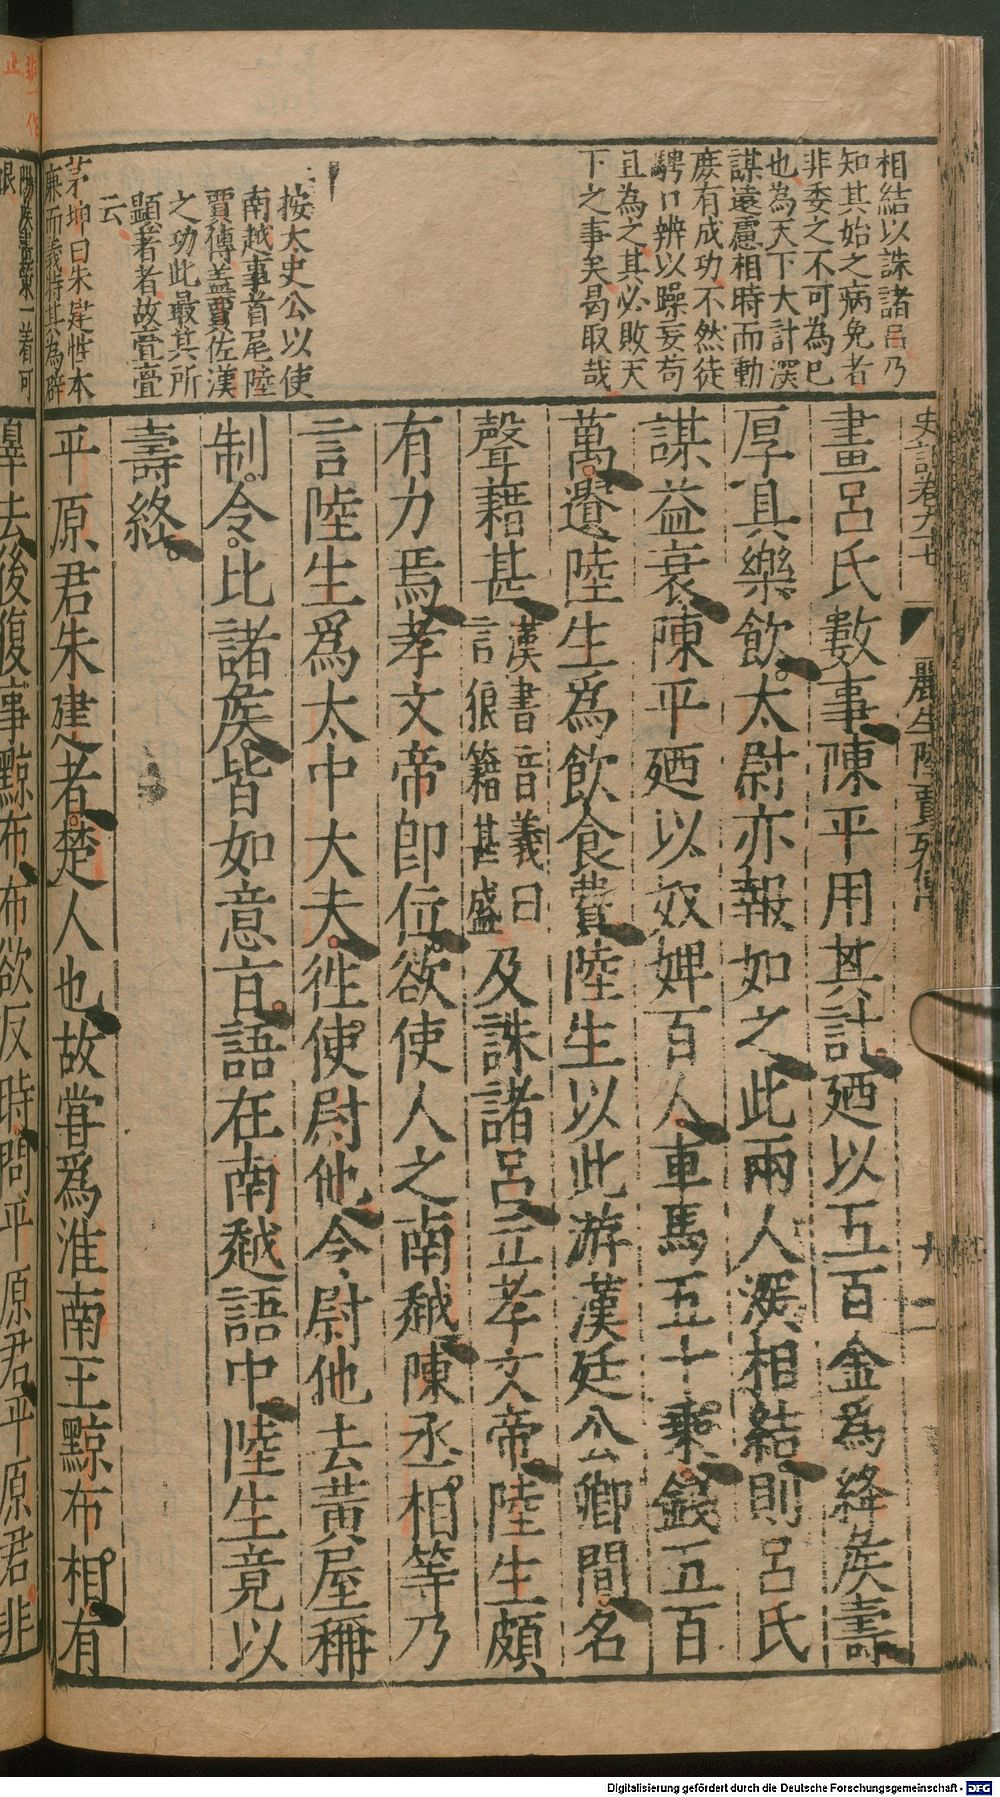 相結以誅諸呂乃
知其始之病免者
非委之不可為已
也為天下大計深
謀遠慮相時而動
庶有成功不然徒
騁口辨以躁妄苟
且為之其必敗天
下之事矣曷取哉
按太史公以使
南越事首尾陸
賈傳蓋賈佐漢
之功此最其所
顯著者故亹亹
云
茅坤曰朱建性本
廉而義特其為辟
陽矦畫策一着可
恨
史記卷九十七
酈生陸賈列傳
十二
畫呂氏數事陳平用其計廼以五百金爲絳矦壽
厚具樂飲太尉亦報如之此兩人深相結則呂氏
謀益衰陳平廼以奴婢百人車馬五十乘錢五百
萬遺陸生爲飲食費陸生以此游漢廷公卿間名
聲藉甚漢書音義曰言狼籍甚盛及誅諸呂立孝文帝陸生頗
有力焉孝文帝卽位欲使人之南越陳丞相等乃
言陸生爲太中大夫徃使尉他令尉他去黃屋稱
制令比諸矦皆如意㫖語在南越語中陸生竟以
壽終
平原君朱建者楚人也故甞爲淮南王黥布相有
辠去後復事黥布布欲反時問平原君平原君非
非一作
止
Digitalisierung gefördert durch die Deutsche Forschungsgemeinschaft - DFG